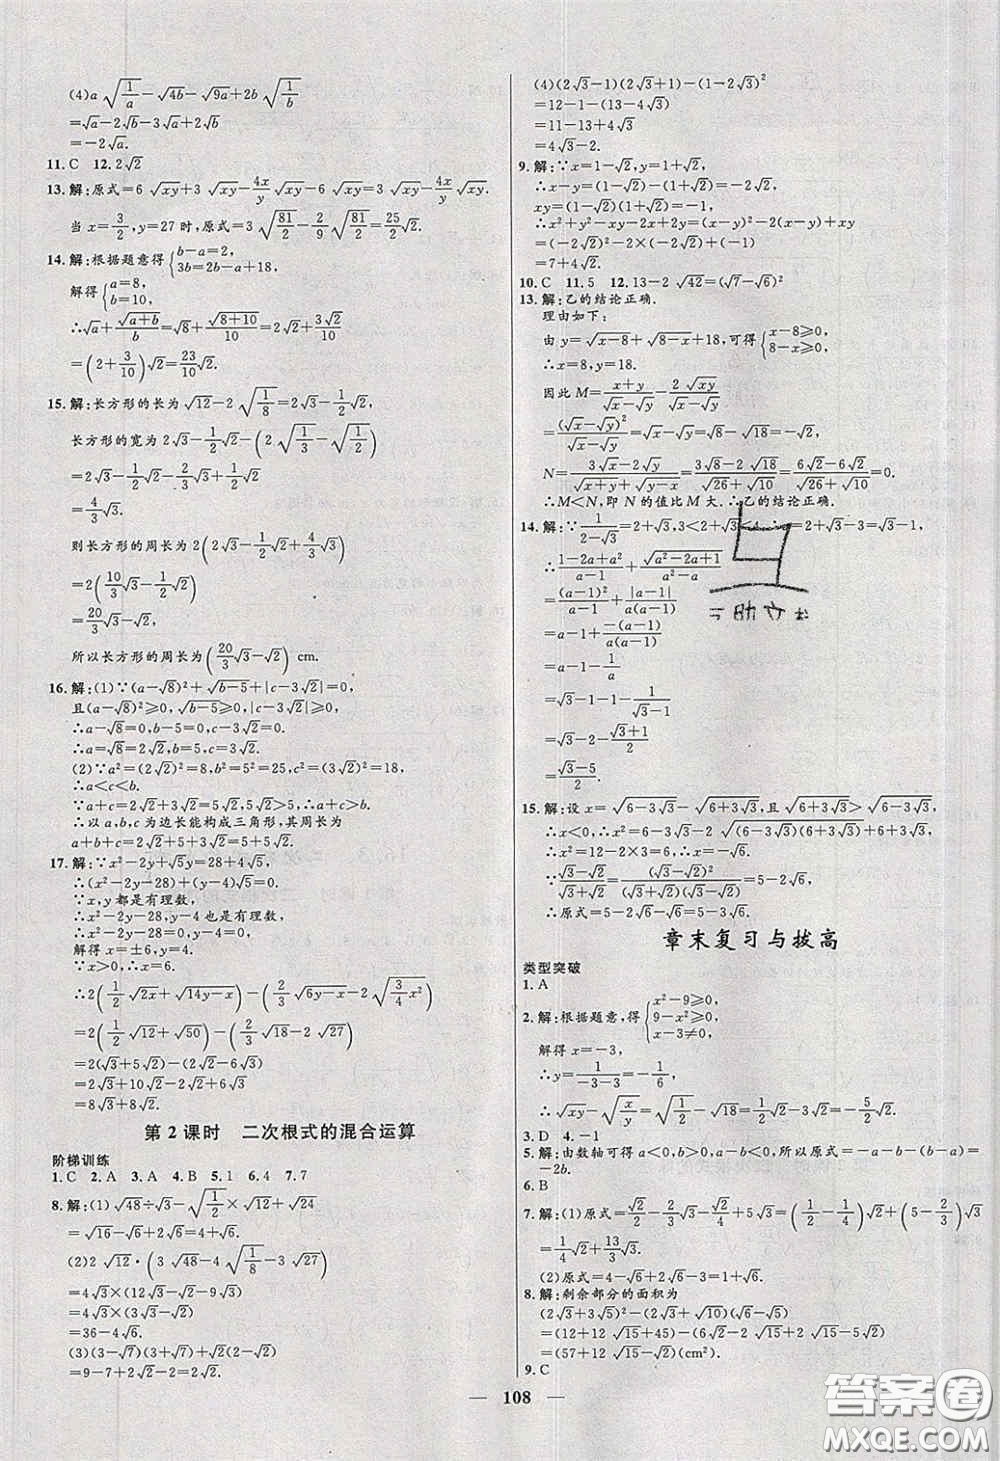 (4)a√(1/a)-√4b-√9a+2b√(1/b)
=√a-2√b-3√a+2√b
=-2√a.
11.C 12.2√2
13.解:原式=6√xy+3√xy-4x/y√xy-6√xy=3√xy-4x/y√xy.
当x=3/2,y=27时,原式=3√(81/2)-2/9√(81/2)=25/2√2.
14.解:根据题意得{b-a=2, 3b=2b-a+18,
解得{a=8, b=10,
∴√a+√(a+b)/b=√8+√(8+10)/10=2√2+3√2/10
=(2+3/10)√2=23/10√2.
15.解:长方形的长为√12-2√(1/8)=2√3-1/2√2,
长方形的宽为2√3-1/2√2-(2√(1/3)-√(1/2))
=2√3-1/2√2-2/3√3+1/2√2
=4/3√3.
则长方形的周长为2(2√3-1/2√2+4/3√3)
=2(10/3√3-1/2√2)
=20/3√3-√2,
所以长方形的周长为(20/3√3-√2) cm.
16.解:(1)∵(a-√8)²+√(b-5)+|c-3√2|=0,
且(a-√8)²≥0,√(b-5)≥0,|c-3√2|≥0,
∴a-√8=0,b-5=0,c-3√2=0.
∴a=√8=2√2,b=5,c=3√2.
(2)∵a²=(2√2)²=8,b²=5²=25,c²=(3√2)²=18,
∴a<c<b.
∵a+c=2√2+3√2=5√2>5,
∴以a,b,c为边长能构成三角形,其周长为
a+b+c=2√2+5+3√2=5√2+5.
17.解:∵x²-2y+√5y=28+4√5,
∴(x²-2y-28)+√5(y-4)=0.
∵x,y都是有理数,
∴x²-2y-28,y-4也是有理数,
∴x²-2y-28=0,y-4=0.
解得x=±6,y=4.
∵x>0,∴x=6.
∴2(1/2√2x+√(14y-x))-(2/3√(6y-x)-2x√(3/4x²))
=2(1/2√12+√50)-(2/3√18-2√27)
=2(√3+5√2)-(2√2-6√3)
=2√3+10√2-2√2+6√3
=8√3+8√2.
第2课时 二次根式的混合运算
阶梯训练
1.C 2.A 3.A 4.B 5.1 6.4 7.7
8.解:(1)√48÷√3-√(1/2)×√12+√24
=√16-√6+2√6=4+√6.
(2)2√12·(3√48-4√(1/8)-3√27)
=4√3×(12√3-√2-9√3)
=4√3×(3√3-√2)
=36-4√6.
(3)(3-√7)(3+√7)+√2(2-√2)
=9-7+2√2-2=2√2.
(4)(2√3-1)(2√3+1)-(1-2√3)²
=12-1-(13-4√3)
=11-13+4√3
=4√3-2.
9.解:∵x=1-√2,y=1+√2,
∴x-y=(1-√2)-(1+√2)=-2√2,
xy=(1-√2)(1+√2)=-1.
∴x²+y²-xy-2x+2y=(x-y)²-2(x-y)+xy
=(-2√2)²-2×(-2√2)+(-1)
=7+4√2.
10.C 11.5 12.13-2√42=(√7-√6)²
13.解:乙的结论正确.
理由如下:
由y=√(x-8)+√(8-x)+18,可得{x-8≥0, 8-x≥0.
∴x=8,y=18.
因此M=(x+y)/(√x-√y)-2√xy/(√x-√y)
=(√x-√y)²/(√x-√y)=√x-√y=√8-√18=-√2,
N=(3√x-2√y)/(√(x+y)+√(y-x))=(3√8-2√18)/(√26+√10)=(6√2-6√2)/(√26+√10)=0.
∴M<N,即N的值比M大.∴乙的结论正确.
14.解:∵1/(2-√3)=2+√3,3<2+√3<4,∴a=2+√3-3=√3-1,
∴(1-2a+a²)/(a-1)+√(a²-2a+1)/(a²-a)
=(a-1)²/(a-1)+|a-1|/(a(a-1))
=a-1+-(a-1)/(a(a-1))
=a-1-1/a
=√3-1-1-1/(√3-1)
=√3-2-(√3+1)/2
=(√3-5)/2.
15.解:设x=√(6-3√3)-√(6+3√3),且√(6+3√3)>√(6-3√3),
∴x<0,∴x²=6-3√3-2√((6-3√3)(6+3√3))+6+3√3,
∴x²=12-2×3=6,∴x=-√6.
∵(√3-√2)/(√3+√2)=(√3-√2)²/((√3+√2)(√3-√2))=5-2√6,
∴原式=5-2√6-√6=5-3√6.
章末复习与拔高
类型突破
1.A
2.解:根据题意,得{x²-9≥0, 9-x²≥0, x-3≠0.
解得x=-3,
∴y=1/(-3-3)=-1/6.
∴√xy-√(x/y)=√(1/2)-√18=1/2√2-3√2=-5/2√2.
3.D 4.-1
5.解:由数轴可得a<0,b>0,a-b<0,∴原式=-a-b-(b-a)=
-2b.
6.B
7.解:(1)原式=√2/2-2/3√3-√2/4+5√3=(1/2-1/4)√2+(5-2/3)√3
=1/4√2+13/3√3.
(2)原式=4-√6+2√6=4+√6.
8.解:剩余部分的面积为
(2√3+3√5)²-(2√3+√10)(√6-√5)
=(12+12√15+45)-(6√2-2√15+2√15-5√2)
=(57+12√15-√2)(cm²).
9.C
108
答案圈
MXQE.COM